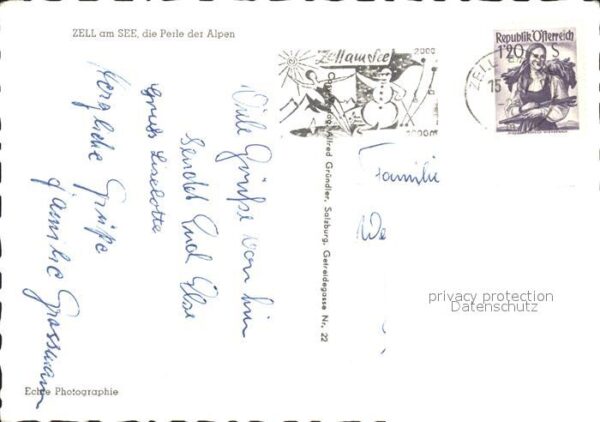 ZELL am SEE, die Perle der Alpen
Viele Grüße von hier
sendet Euch Else
Gruss Liselotte
Herzliche Grüße
Familie Grossmann
Echte Photographie
Alfred Gründler, Salzburg, Getreidegasse Nr. 22
Zell am See
2000
2000m
ZELL
15
Republik Österreich
1'20 S
Familie
We
privacy protection
Datenschutz